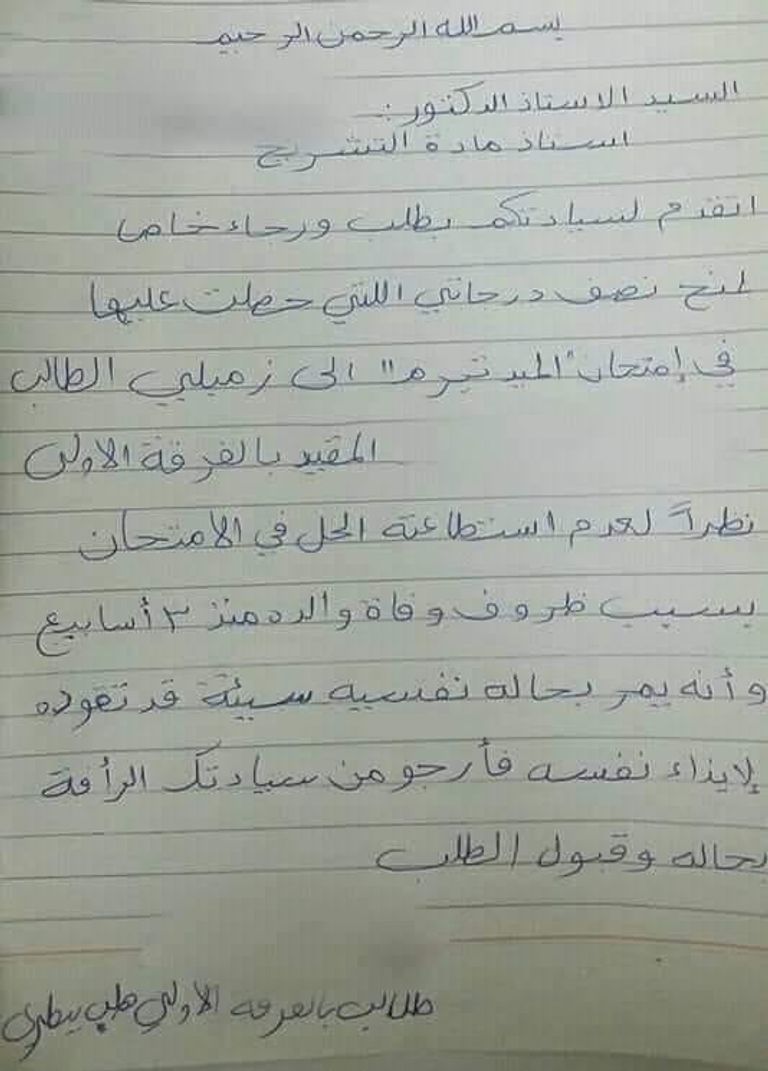 بسم الله الرحمن الرحيم
السيد الاستاذ الدكتور :
استاذ مادة التشريح
اتقدم لسيادتكم بطلب ورجاء خاص
لمنح نصف درجاتي اللتي حصلت عليها
في إمتحان "الميد تيرم" الى زميلي الطالب
المقيد بالفرقة الاولى
نظراً لعدم استطاعته الحل في الامتحان
بسبب ظروف وفاة والده منذ ٣ أسابيع
وأنه يمر بحاله نفسيه سيئة قد تقوده
لإيذاء نفسه فأرجو من سيادتك الرأفة
بحاله وقبول الطلب
طالب بالفرقه الاولي طب بيطري